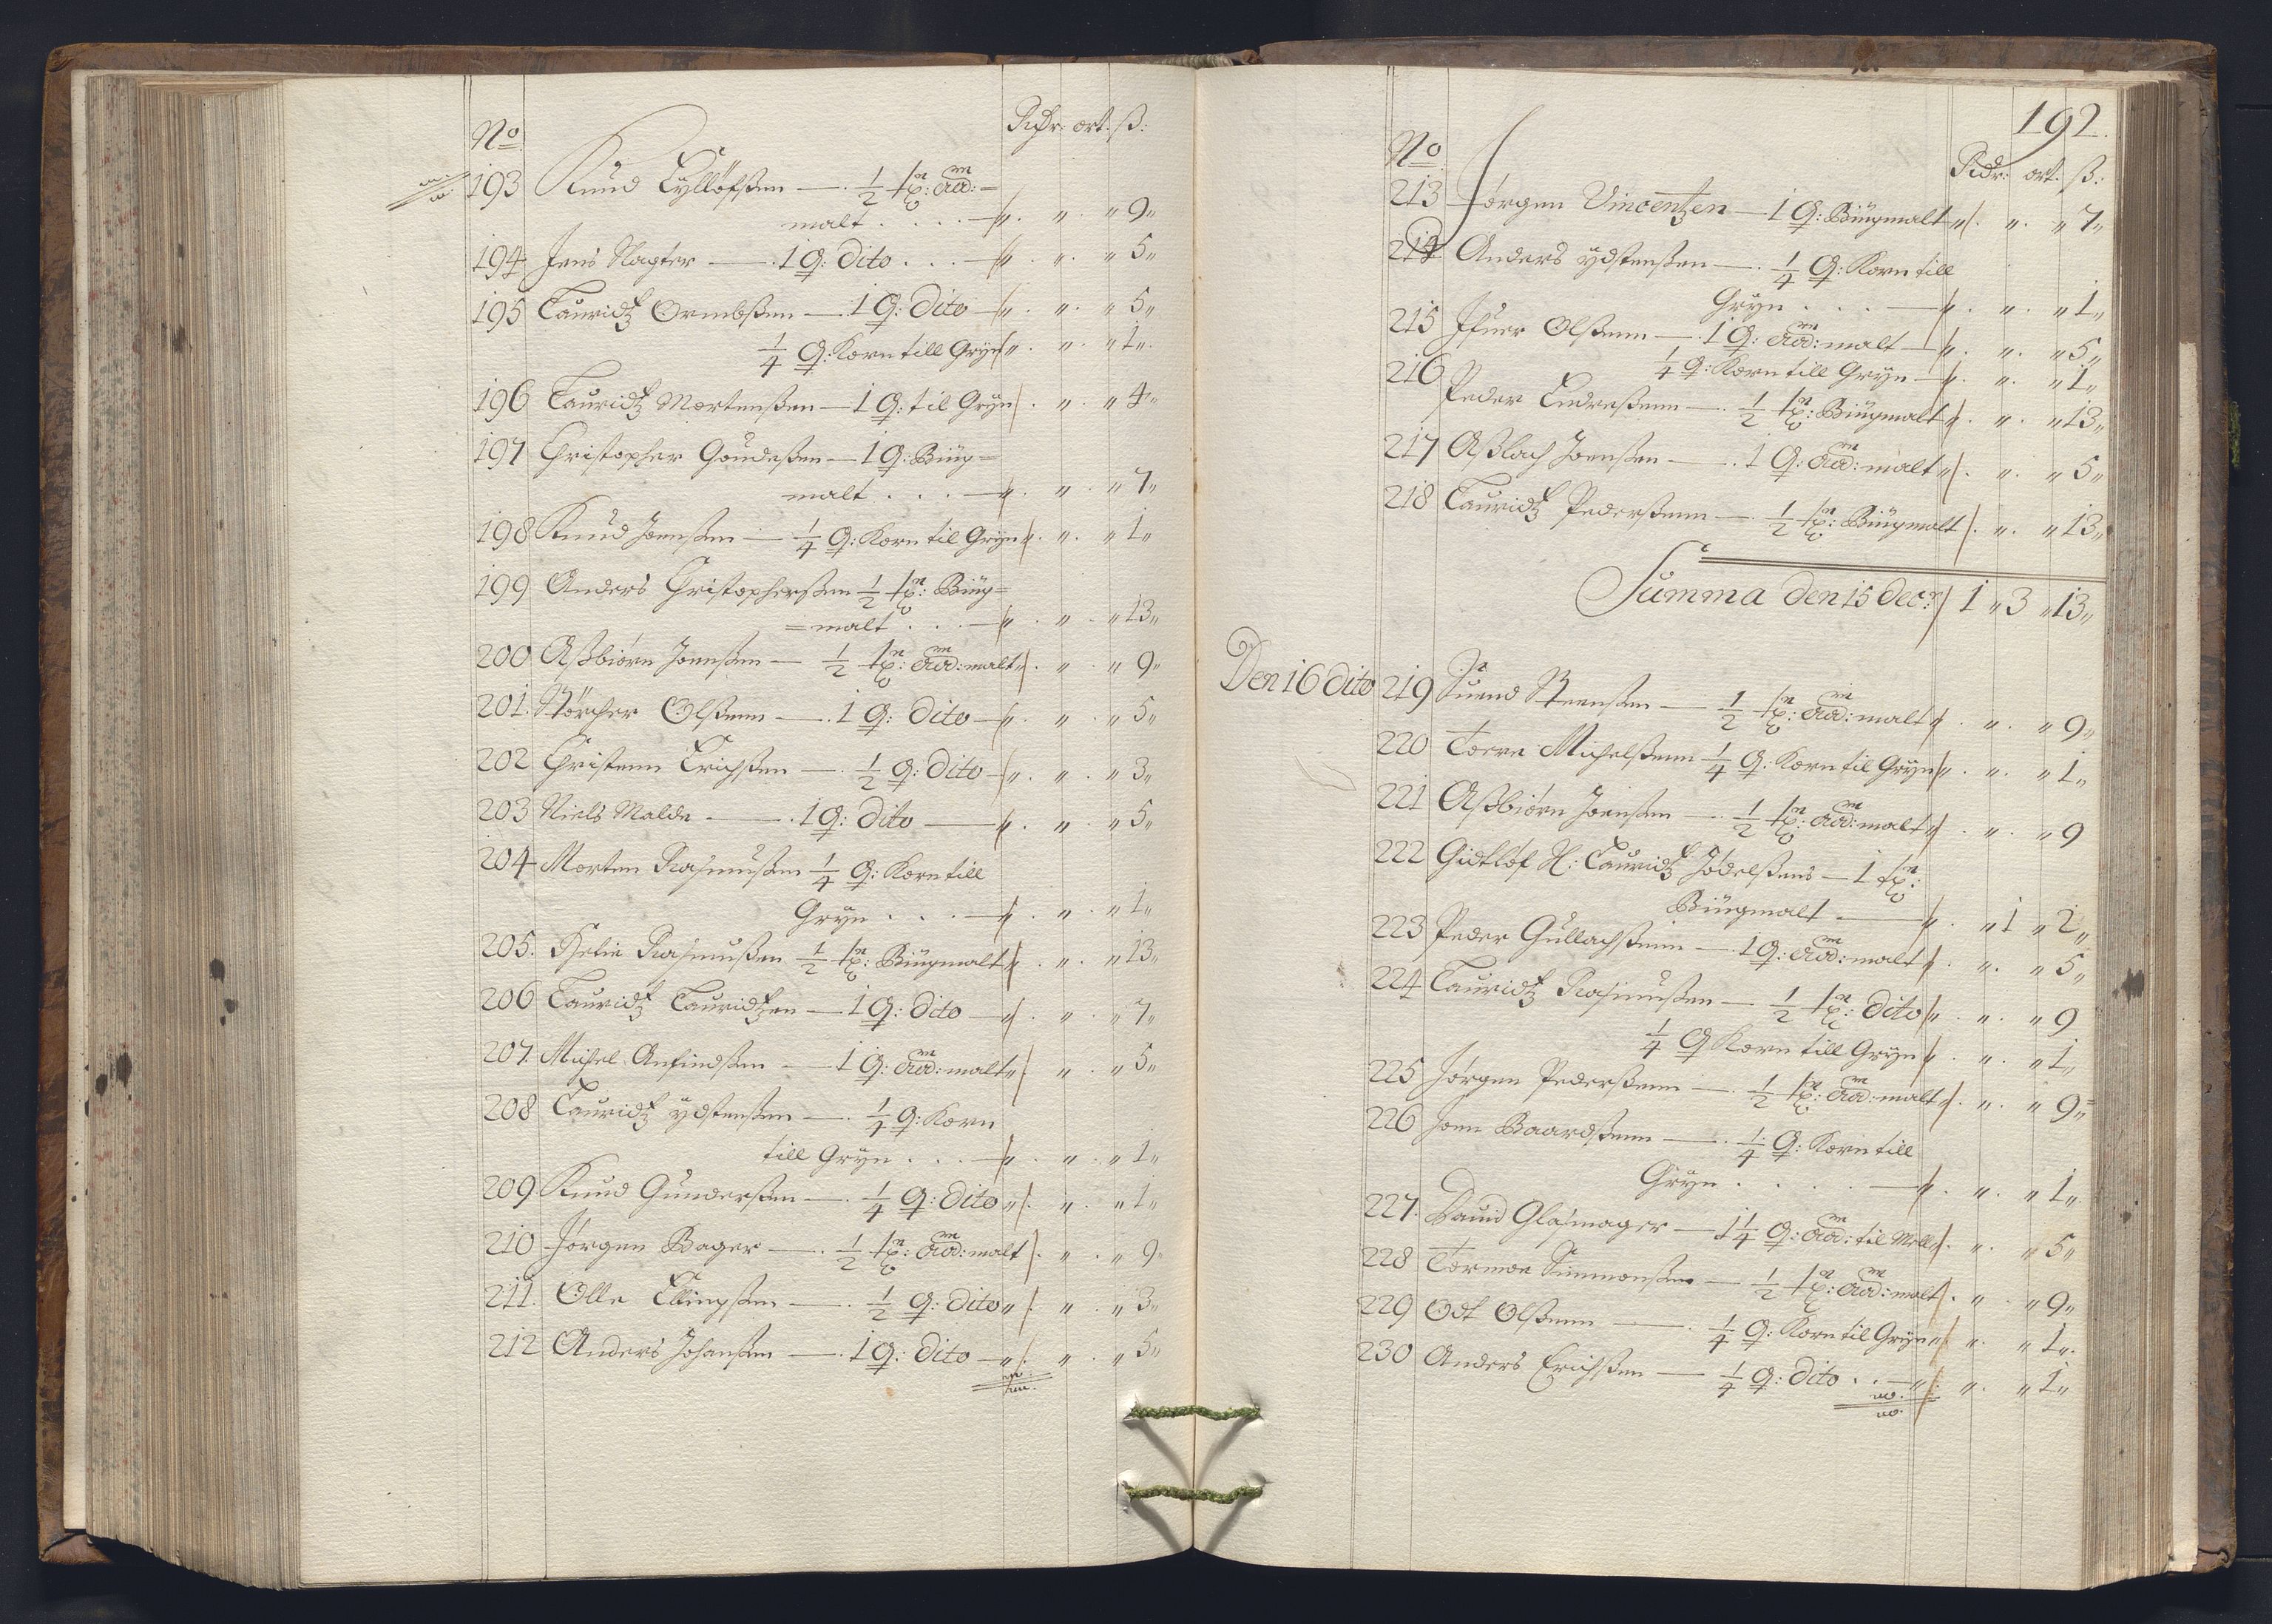 No Rdr: ort: ß:
193 Knud Eyllofßen — ½ tp: ad:=
malt . . . — „ . „ . „ 9 „
194 Jens Slagter — 1 Q: dito . . — „ . „ . „ 5 „
195 Lauridtz Ormbßen — 1 Q: dito — „ . „ . „ 5 „
¼ Q: Korn till Gryn „ . „ . „ 1 „
196 Lauridtz Mortenßen — 1 Q: til Gryn . „ . „ 4 „
197 Christopher Goudeßen — 1 Q: Biug=
malt . . . — „ . „ . „ 7 „
198 Knud Joenßen — ¼ Q: Korn til Gryn „ . „ . „ 1 „
199 Anders Christopherßen ½ tp: Biug=
=malt . . . — „ . „ . „ 13 „
200 Aßbiørn Joenßen — ½ tp: ad: malt „ . „ . „ 9 „
201. Størcher Olßenn — 1 Q: dito — „ . „ . „ 5 „
202 Christenn Erichßen — ½ Q: dito — „ . „ . „ 3 „
203 Niels Malde — 1 Q: dito — „ . „ . „ 5 „
204 Morten Rasmußen ¼ Q: Korn till
Gryn . . . — „ . „ . „ 1 „
205. Rasmußen ½ tp: Biugmalt „ . „ . „ 13 „
206 Lauridtz Lauridtzen — 1 Q: dito — „ . „ . „ 7 „
207. Michel Anfindßen — 1 Q: ad: malt „ . „ . „ 5 „
208 Lauridtz ydstenßen — ¼ Q: Korn
till Gryn . . . — „ . „ . „ 1 „
209 Knud Gunderßen — ¼ Q: dito „ . „ . „ 1 „
210 Jørgen Bager — ½ tp: ad: malt . „ . „ 9 „
211. Olle Ellingßen — ½ Q: dito „ . „ . „ 3 „
212 Anders Johanßen — 1 Q: dito — „ . „ . „ 5 „
192.
No Rdr: ort: ß:
213 Jørgen Vincentzen — 1 Q: Biugmalt „ . „ . „ 7 „
214 Anders ydstenßen — ¼ Q: Korn till
Gryn . . . — „ . „ . „ 1 „
215 Ifuer Olßenn — 1 Q: ad: malt — „ . „ . „ 5 „
¼ Q: Korn till Gryn — „ . „ . „ 1 „
216 Peder Endreßenn — ½ tp: Biugmalt „ . „ . „ 13 „
217 Aßlach Joenßen — 1 Q: ad: malt „ . „ . „ 5 „
218 Lauridtz Pederßenn — ½ tp: Biugmalt . „ . „ 13 „
Summa den 15 Decr: 1 „ 3 „ 13 „
Den 16 dito 219 Suend Steenßen — ½ tp: ad: malt „ . „ . „ 9 „
220 Torre Michelßenn ¼ Q: Korn til Gryn „ . „ . „ 1 „
221 Aßbiørn Joenßen — ½ tp: ad: malt „ . „ . „ 9
222 Gidtlof Lauridtz Jodelßens — 1 tp:
Biugmalt — „ . „ 1 „ 2 „
223 Peder Gullachßenn — 1 Q: ad: malt „ . „ . „ 5 „
224 Lauridtz Rasmußen — ½ tp: dito „ . „ . „ 9
¼ Q Korn till Gryn „ . „ . „ 1 „
225 Jørgen Pederßenn — ½ tp: ad: malt „ . „ . „ 9 „
226 Joen Baardßenn — ¼ Q: Korn till
Gryn . . . . — „ . „ . „ 1 „
227. Dauid Glasmager — 1¼ Q: ad: til Mell . „ . „ 5 „
228 Tormoe Simmonßen — ½ tp: ad: malt . „ . „ 9 „
229 Odt Olßenn — ¼ Q: Korn til Gryn „ . „ . „ 1 „
230 Anders Erichßen — ¼ Q: dito . . — „ . „ . „ 1 „